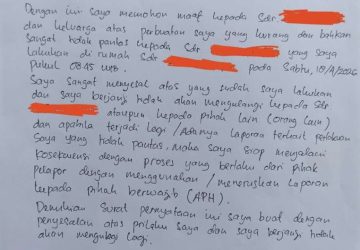 Dengan ini saya memohon maaf kepada Sdr.
dan keluarga atas perbuatan saya yang kurang dan bahkan
sangat tidak pantas kepada Sdr yang saya
lakukan di rumah Sdr pada Sabtu, 18/4/2026
Pukul 08.45 WIB.
Saya sangat menyesal atas yang sudah saya lakukan
dan saya berjanji tidak akan mengulangi kepada Sdr
ataupun kepada pihak lain (orang lain)
dan apabila terjadi lagi / adanya laporan terkait perlakuan
saya yang tidak pantas. Maka saya siap menjalani
Kosekuensi dengan proses yang berlaku dari pihak
Pelapor dengan menggunakan / meneruskan laporan
kepada pihak berwajib (APH).
Demikian Surat pernyataan ini saya buat dengan
penyesalan atas prilaku saya dan saya berjanji tidak
akan mengulangi lagi.